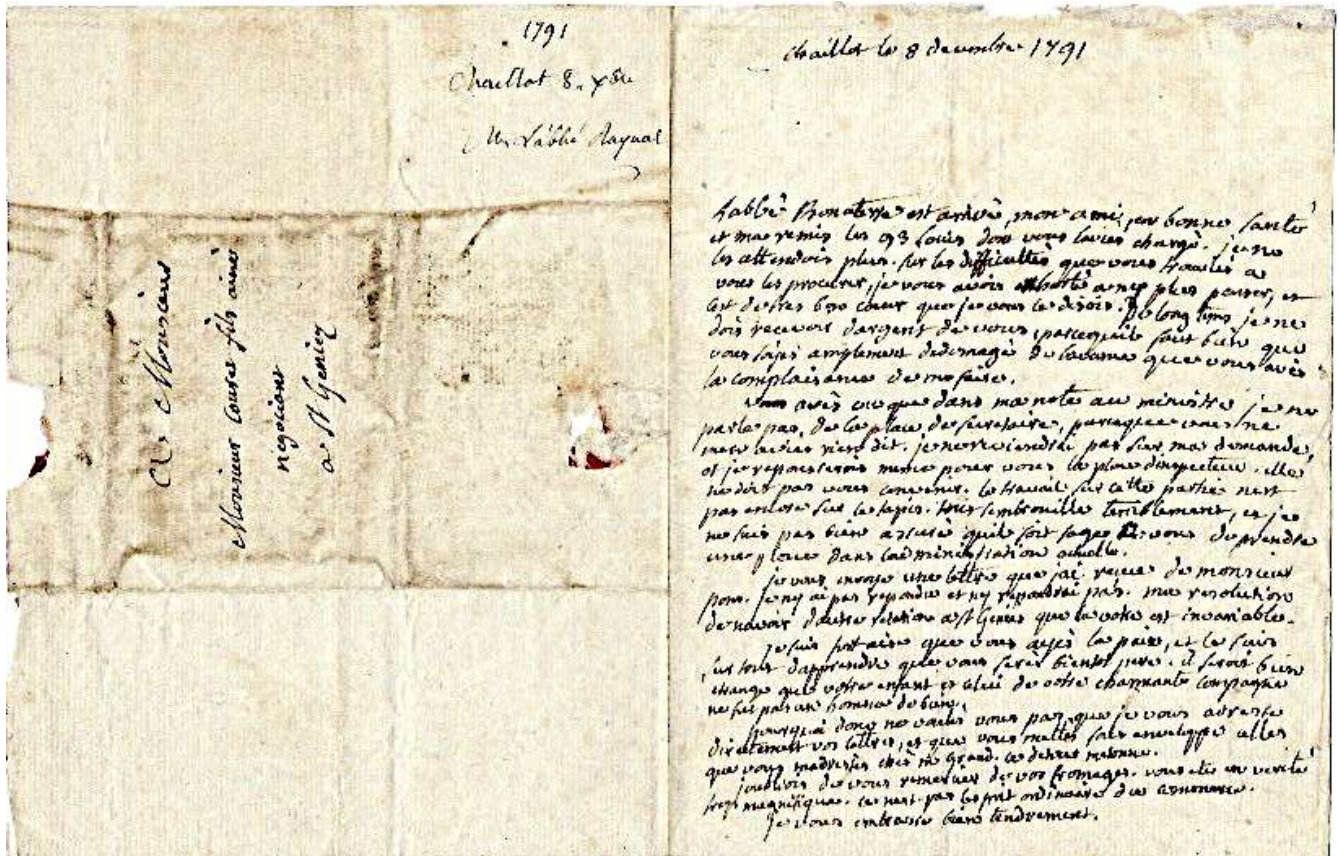 1791
Chaillot 8. Xbre
Mr L'abbé Raynal
A Monsieur
Monsieur Couret fils ainé
negociant
a St Geniez
Chaillot le 8 decembre 1791
L'abbé Bonaterre est arrivé, mon ami, en bonne santé
et ma remis les 93 louis dont vous lavies chargé. je ne
les attendois plus. sur les difficultés que vous trouviés a
vous les procurer, je vous avois exhorté a ny plus penser, et
cest de tres bon coeur que je vous le disois. De long tems je ne
dois recevoir dargent de vous parcequil faut bien que
vous soiés amplement dedomagé de lavance que vous avés
la complaisance de me faire.
vous avés vu que dans ma note au ministre je ne
parle pas de la place de secretaire, parceque vous ne
men aviés rien dit. je ne reviendrai pas sur ma demande,
et je repousserois meme pour vous la place dinspecteur. elle
ne doit pas vous convenir. le travail sur cette partie nest
pas encore sur le tapis. tout sembrouille terriblement, et je
ne suis pas bien assuré quil soit sage a vous de prendre
une place dans ladministration actuelle.
je vous envoye une lettre que jai reçue de monsieur
pons. je ny ai pas repondu et ny repondrai pas. ma resolution
de navoir dautre relation a St Geniés que la votre est invariable.
je suis fort aise que vous ayés la paix, et le suis
sur tout dapprendre que vous serés bientot pere. il seroit bien
etrange que votre enfant et celui de votre charmante compagne
ne fut pas un homme de bien.
pourquoi donc ne voulés vous pas que je vous adresse
directement vos lettres, et que vous mettés sous enveloppe celles
que vous madressés chés mr Grand. ce detour metonne.
joubliois de vous remercier de vos fromages. vous etes en verité
trop magnifique. ce nest pas lesprit ordinaire du
je vous embrasse bien tendrement.